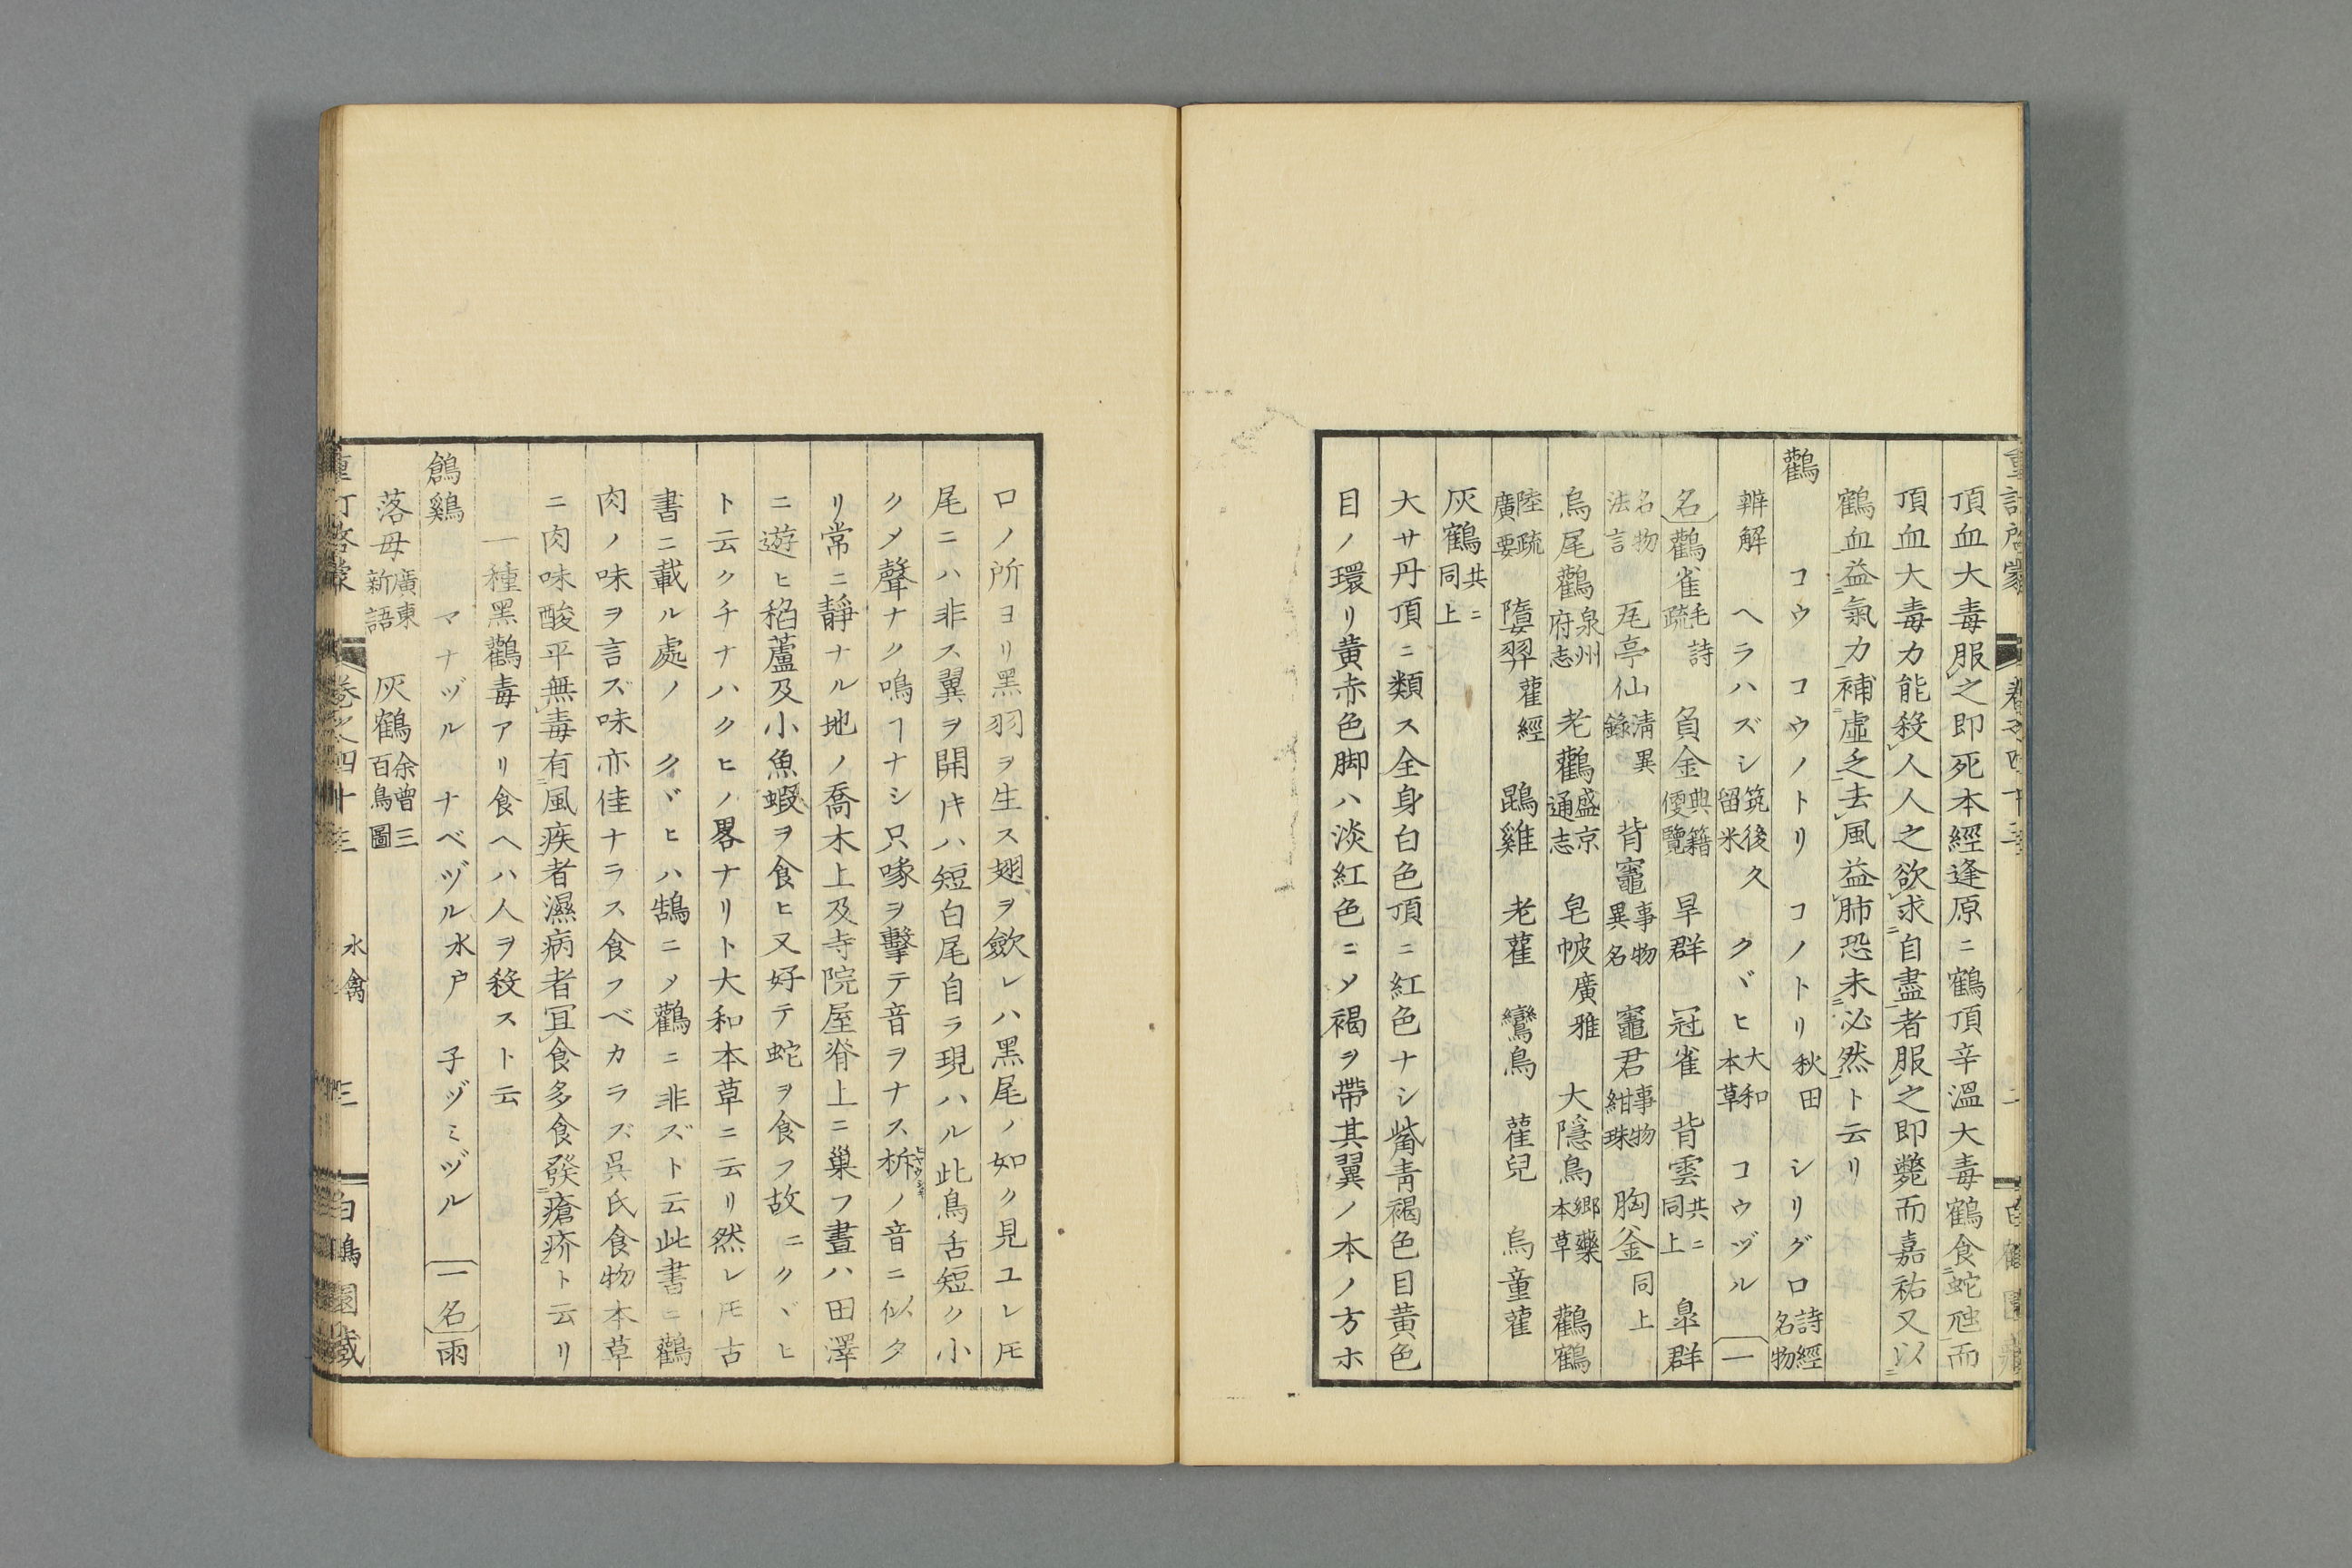 頂血大毒服之即死本經逢原ニ鶴頂辛溫大毒鶴食蛇虺而
頂血大毒力能殺人人之欲求自盡者服之即斃而嘉祐又以
鶴血益氣力補虛乏去風益肺恐未必然ト云リ
鸛 コウ コウノトリ コノトリ秋田 シリグロ詩經名物
辨解 ヘラハズシ筑後久留米 クヾヒ大和本草 コウヅル 一
名 鸛雀毛詩疏 負金典籍便覽 旱群 冠雀 背雲共ニ同上 皐群
名物法言 兎亭仙淸異錄 背竈事物異名 竈君事物紺珠 胸釜同上
烏尾鸛泉州府志 老鸛盛京通志 皂帔廣雅 大隱鳥鄉藥本草 鸛鶴
陸疏廣要 墮羿雚經 鵾雞 老雚 鸞鳥 雚兒 烏童雚
灰鶴共ニ同上
大サ丹頂ニ類ス全身白色頂ニ紅色ナシ觜靑褐色目黃色
目ノ環リ黃赤色脚ハ淡紅色ニメ褐ヲ帶其翼ノ本ノ方ホ
ロノ所ヨリ黑羽ヲ生ス翅ヲ歛レハ黑尾ノ如ク見ユレ𪜈
尾ニハ非ス翼ヲ開キハ短白尾自ラ現ハル此鳥舌短ク小
クメ聲ナク鳴ヿナシ只喙ヲ擊テ音ヲナス柝ノ音ニ似タ
リ常ニ靜ナル地ノ喬木上及寺院屋脊上ニ巢フ晝ハ田澤
ニ遊ヒ稻蘆及小魚蝦ヲ食ヒ又好テ蛇ヲ食フ故ニクヾヒ
ト云クチナハクヒノ畧ナリト大和本草ニ云リ然レ𪜈古
書ニ載ル處ノクヾヒハ鵠ニメ鸛ニ非ズト云此書ニ鸛
肉ノ味ヲ言ズ味亦佳ナラス食フベカラズ吳氏食物本草
ニ肉味酸平無毒有風疾者濕病者冝食多食發瘡疥ト云リ
一種黑鸛毒アリ食ヘハ人ヲ殺スト云
鶬鷄 マナヅル ナベヅル水戶 子ヅミヅル 一名 雨
落母廣東新語 灰鶴余曾三百鳥圖
重訂啓蒙 卷之四十三 水禽 三